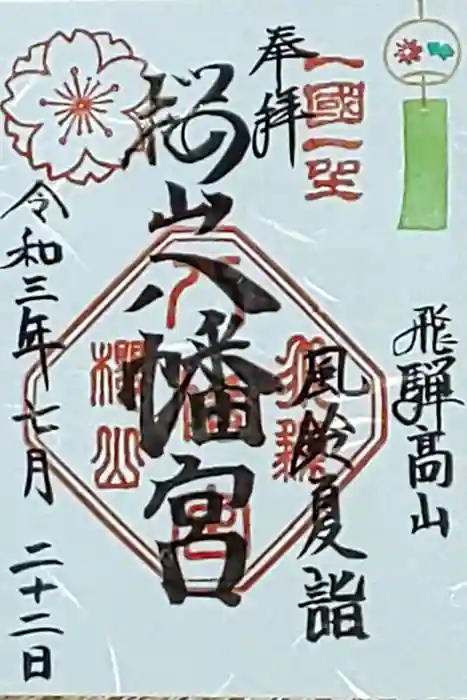 飛騨高山
奉拝
一國一社
風鈴夏詣
桜山八幡宮
櫻山
令和三年七月二十二日